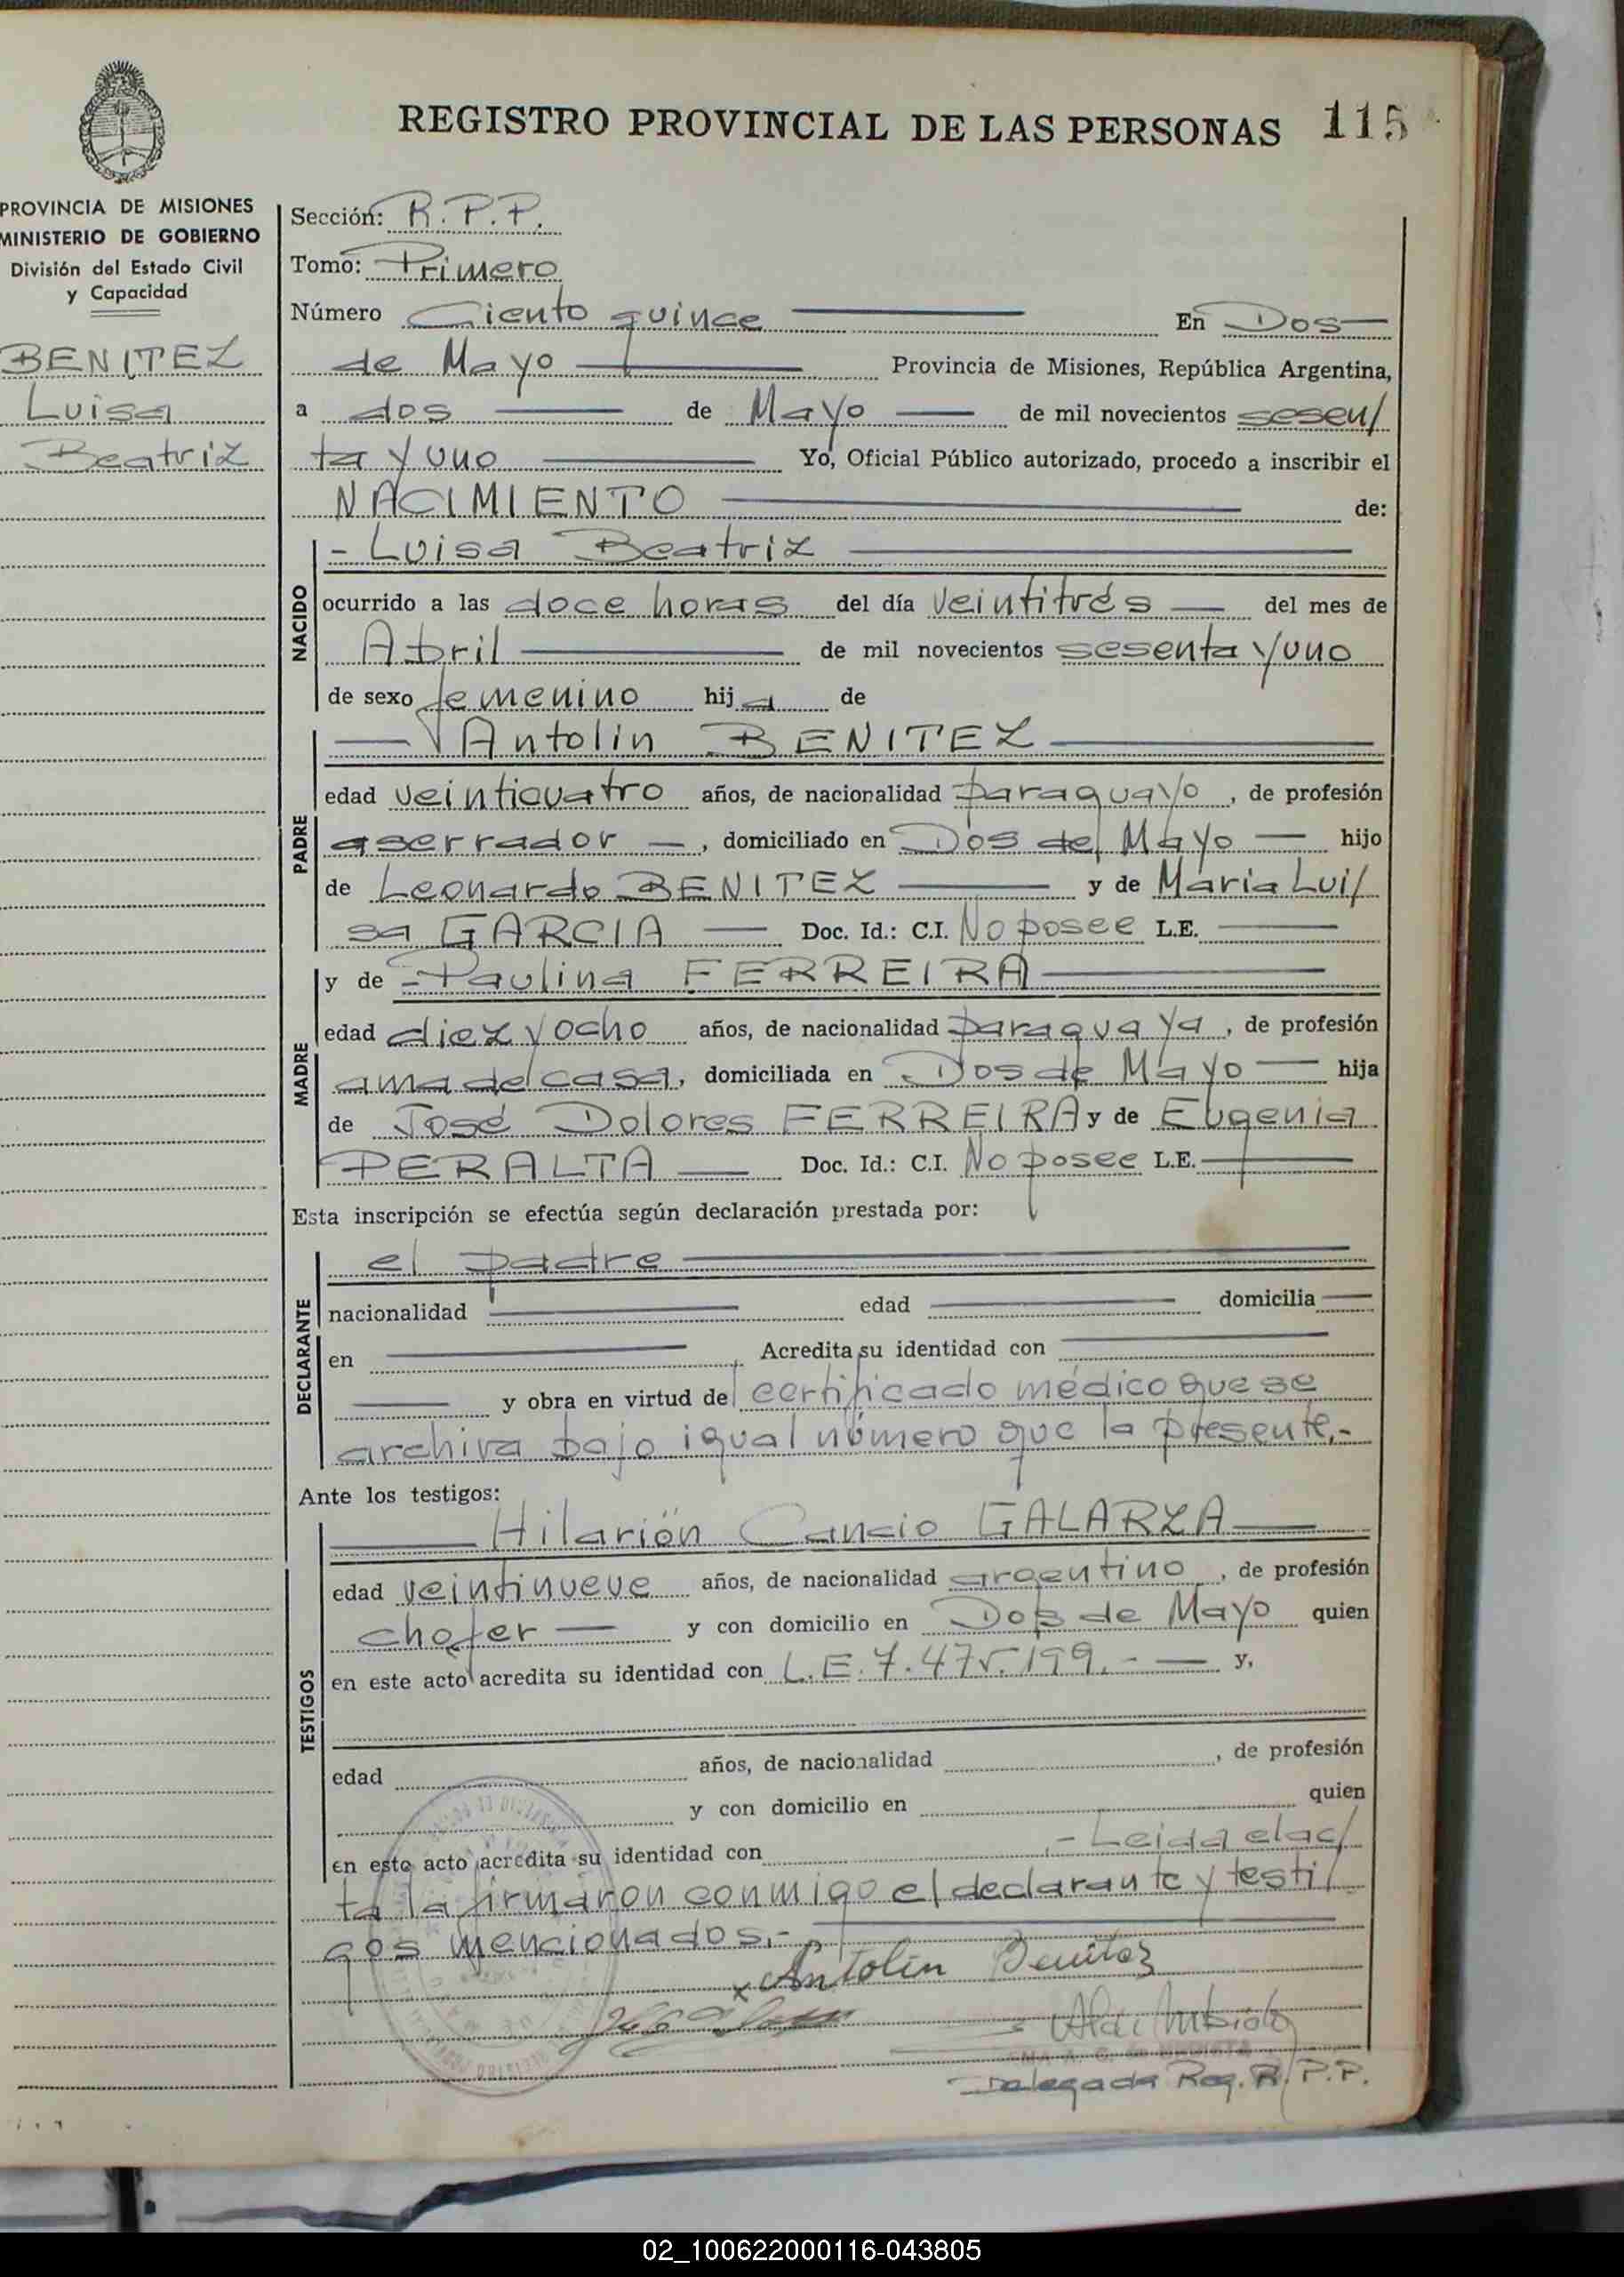 REGISTRO PROVINCIAL DE LAS PERSONAS 115
PROVINCIA DE MISIONES
MINISTERIO DE GOBIERNO
División del Estado Civil
y Capacidad
BENITEZ
Luisa
Beatriz
Sección: R.P.P.
Tomo: Primero
Número Ciento quince En Dos
de Mayo Provincia de Misiones, República Argentina,
a dos de Mayo de mil novecientos sesen/
ta y uno Yo, Oficial Público autorizado, procedo a inscribir el
NACIMIENTO de:
NACIDO
- Luisa Beatriz
ocurrido a las doce horas del día veintitrés del mes de
Abril de mil novecientos sesenta y uno
de sexo femenino hija de
PADRE
Antolin BENITEZ
edad veinticuatro años, de nacionalidad paraguayo, de profesión
aserrador, domiciliado en Dos de Mayo hijo
de Leonardo BENITEZ y de Maria Lui/
sa GARCIA Doc. Id.: C.I. No posee L.E.
MADRE
y de - Paulina FERREIRA
edad diez y ocho años, de nacionalidad paraguaya, de profesión
ama de casa, domiciliada en Dos de Mayo hija
de José Dolores FERREIRA y de Eugenia
PERALTA Doc. Id.: C.I. No posee L.E.
Esta inscripción se efectúa según declaración prestada por:
DECLARANTE
el padre
nacionalidad edad domicilia
en Acredita su identidad con
y obra en virtud del certificado médico que se
archiva bajo igual número que la presente.-
Ante los testigos:
TESTIGOS
Hilarión Cancio GALARZA
edad veintinueve años, de nacionalidad argentino, de profesión
chofer y con domicilio en Dos de Mayo quien
en este acto acredita su identidad con L.E. 7.475.199.- y,
edad años, de nacionalidad , de profesión
y con domicilio en quien
en este acto acredita su identidad con .- Leida el ac/
ta la firmaron conmigo el declarante y testi/
gos mencionados.-
x Antolin Benitez
Delegada Reg. R.P.P.
02_100622000116-043805